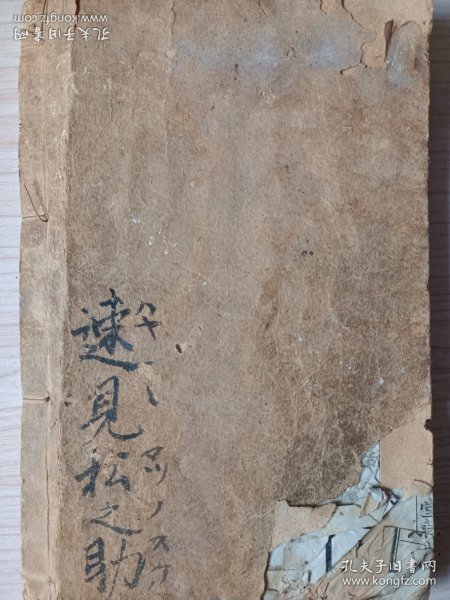 孔夫子旧书网
www.kongfz.com
速見松之助
ハヤミマツノスケ
孔夫子旧书网
www.kongfz.com